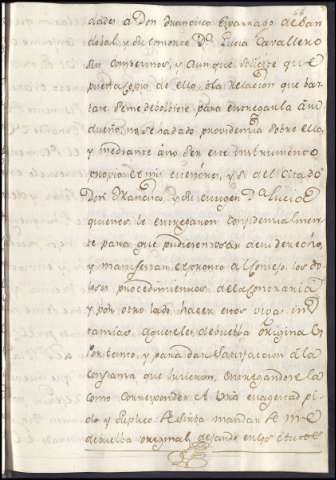 dades a Don Francisco Sparrado de San
dobal y su consorte D.ª Lucia Cavallero
sus convecinos, y aunque solicite que
puesta copia de ello, ó la relacion que bas
tare se me debolviese para entregarla á su
dueño, no se ha dado providencia sobre ello,
y mediante á no ser este instrumento
propio de mis menores, y si del citado
Don Francisco, y su muger D.ª Lucia
quienes le entregaron confidencialmen
te para que pudiesen usar de su derecho,
y manifestar el pronto al Consejo los do
losos procedimientos de la contraria
y por otro lado hacer enos viva ins
tancia aque se les debuelba original
Por tanto, y para dar satisfacion á la
confianza que hicieron, entregandosela
como corresponde: A Vria en aqueta pi
do y suplico se sirba mandar se me
debuelba original, dejando en los autos